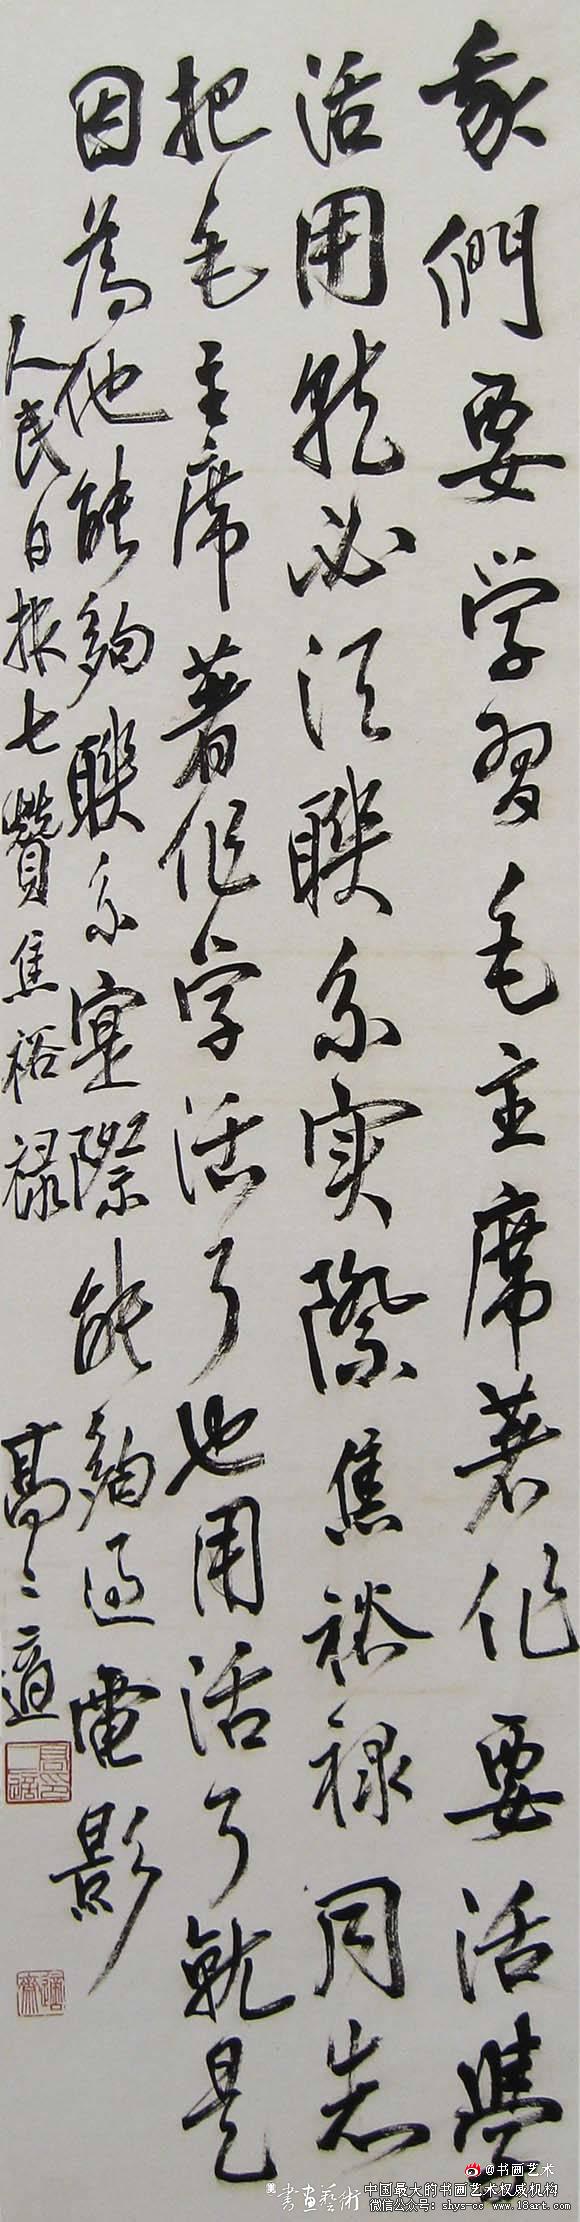 我們要学習毛主席著作要活學
活用就必須聯系实際焦裕禄同志
把毛主席著作学活了也用活了就是
因為他能夠聯系寔際能夠過電影
人民日报七贊焦裕禄
高二適
@书画艺术
書畫藝術
中国最大的书画艺术权威机构
微信公众号: shys-cc www.18art.com